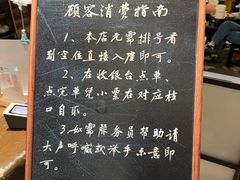 顾客消费指南
1、本店无需排号看
到空位直接入座即可。
2、在收银台点单、
点完单凭小票在对应档
口自取。
3、如需服务员帮助请
大声呼喊或举手示意即
可。